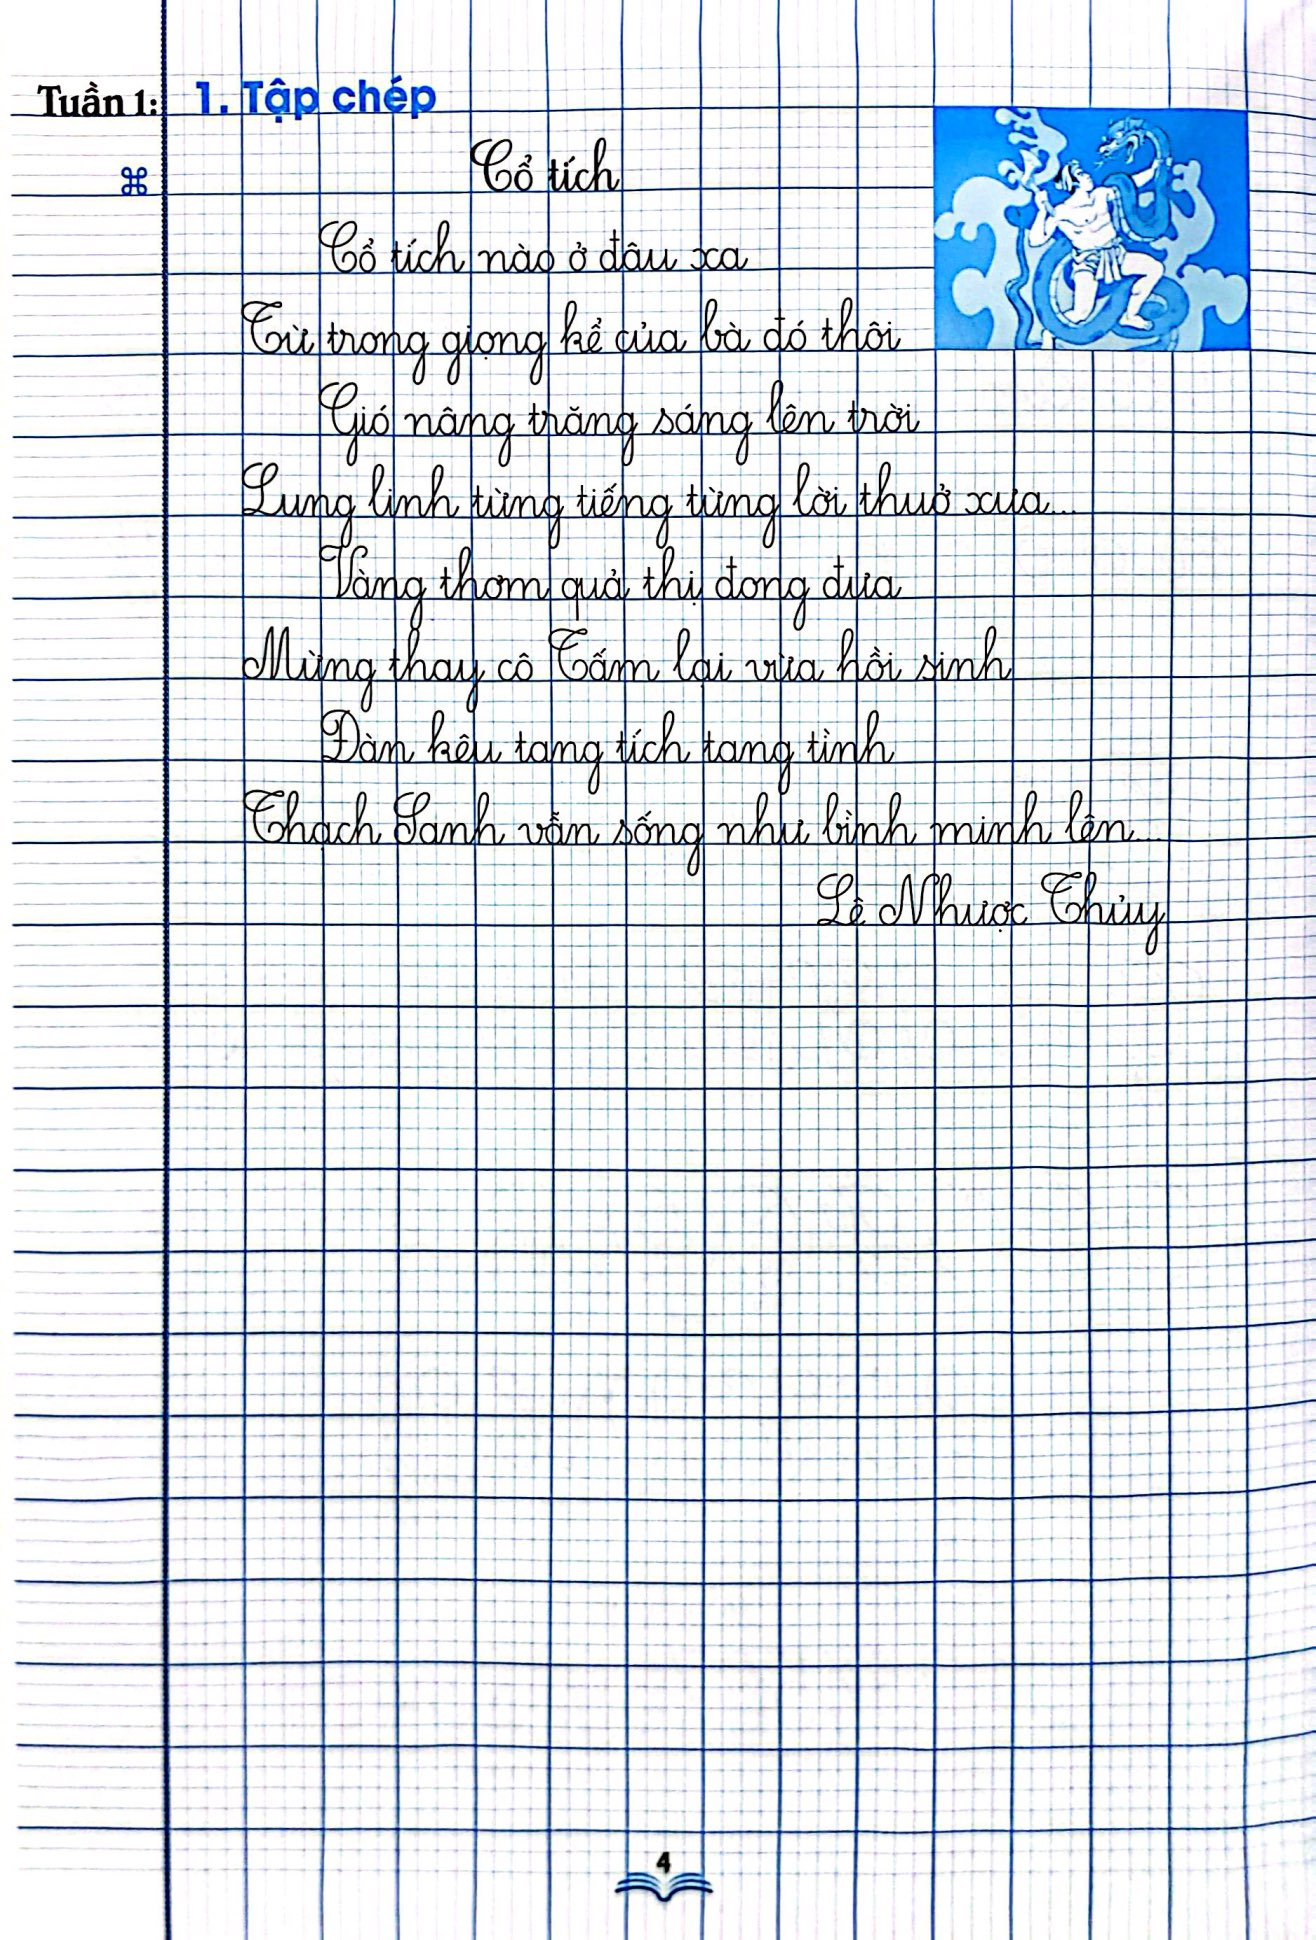 Tuần 1: 1. Tập chép
Cổ tích
Cổ tích nào ở đâu xa
Từ trong giọng kể của bà đó thôi
Gió nâng trăng sáng lên trời
Lung linh từng tiếng từng lời thuở xưa...
Vàng thơm quả thị đong đưa
Mừng thay cô Tấm lại vừa hồi sinh
Đàn kêu tang tích tang tình
Thạch Sanh vẫn sống như bình minh lên...
Lê Nhược Thủy
4